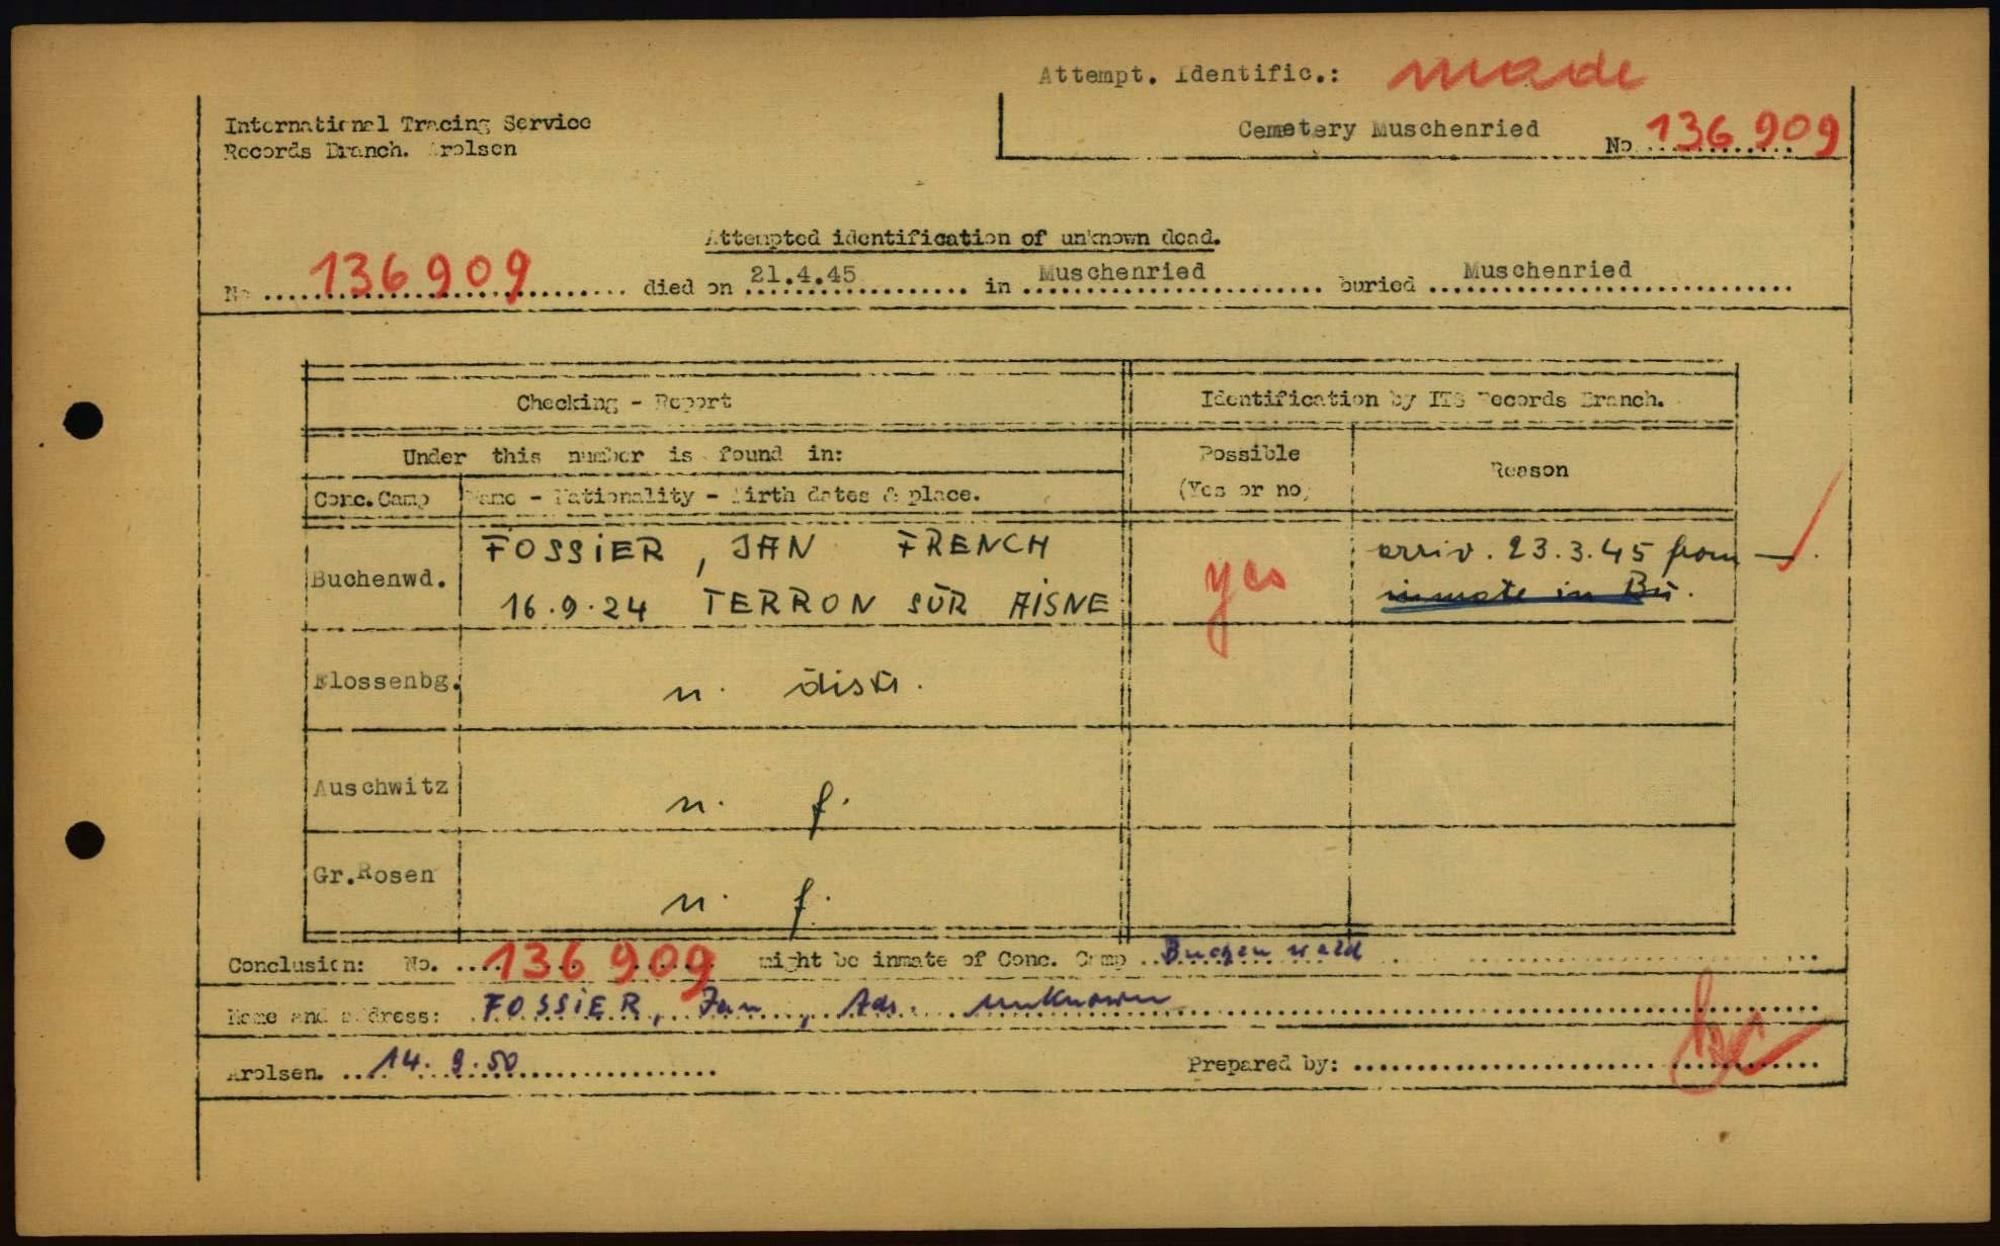 Attempt. Identific.: made
International Tracing Service
Records Branch. Arolsen
Cemetery Muschenried
No 136909
Attempted identification of unknown dead.
No 136909 died on 21.4.45 in Muschenried buried Muschenried
Checking - Report
Identification by ITS Records Branch.
Under this number is found in:
Possible
(Yes or no)
Reason
Conc.Camp
Name - Nationality - Birth dates & place.
Buchenwd.
FOSSIER, JAN FRENCH
16.9.24 TERRON SUR AISNE
yes
arriv. 23.3.45 from —
inmate in Bu.
Flossenbg.
n. distr.
Auschwitz
n. f.
Gr.Rosen
n. f.
Conclusion: No. 136909 might be inmate of Conc. Camp Buchenwald
Name and address: FOSSIER, Jan, Adr. unknown
Arolsen. 14.9.50
Prepared by: